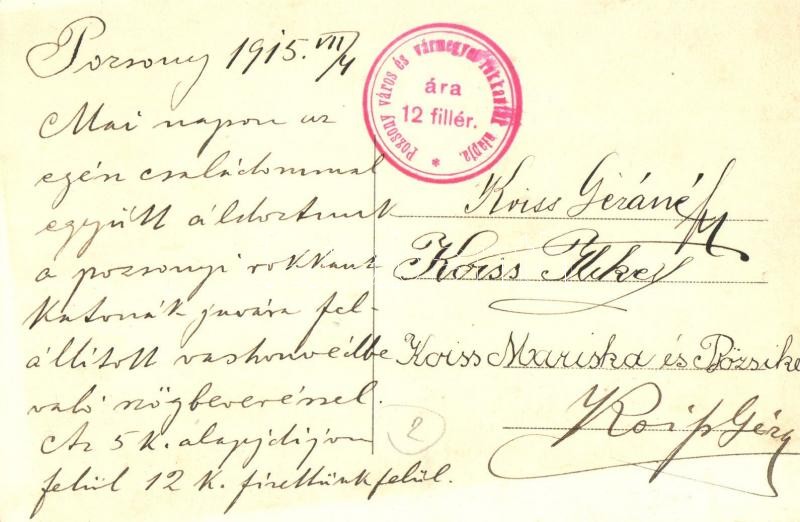 Pozsony 1915. VII/4
Mai napon az
egén családommal
együtt áldoztunk
a pozsonyi rokkant
katonák javára fel-
állított vashonvédbe
való szögbeveréssel.
Az 5 K. alapdíjon
felül 12 K. fizettünk felül.
Pozsony város és vármegyei rokkantak alapja.
ára
12 fillér.
*
Koiss Gézáné
Koiss Ilike
Koiss Mariska és Bözsike
Koiss Géza
2